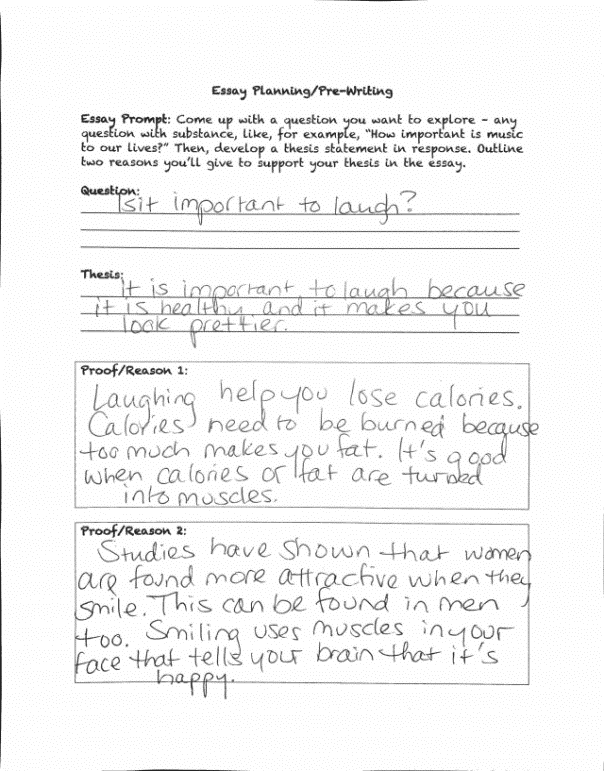 Essay Planning/Pre-Writing
Essay Prompt: Come up with a question you want to explore – any
question with substance, like, for example, "How important is music
to our lives?" Then, develop a thesis statement in response. Outline
two reasons you'll give to support your thesis in the essay.
Question:
Is it important to laugh?
Thesis:
It is important to laugh because
it is healthy and it makes you
look prettier.
Proof/Reason 1:
Laughing help you lose calories.
Calories need to be burned because
too much makes you fat. It's good
when calories or fat are turned
into muscles.
Proof/Reason 2:
Studies have shown that women
are found more attractive when they
smile. This can be found in men
too. Smiling uses muscles in your
face that tells your brain that it's
happy.